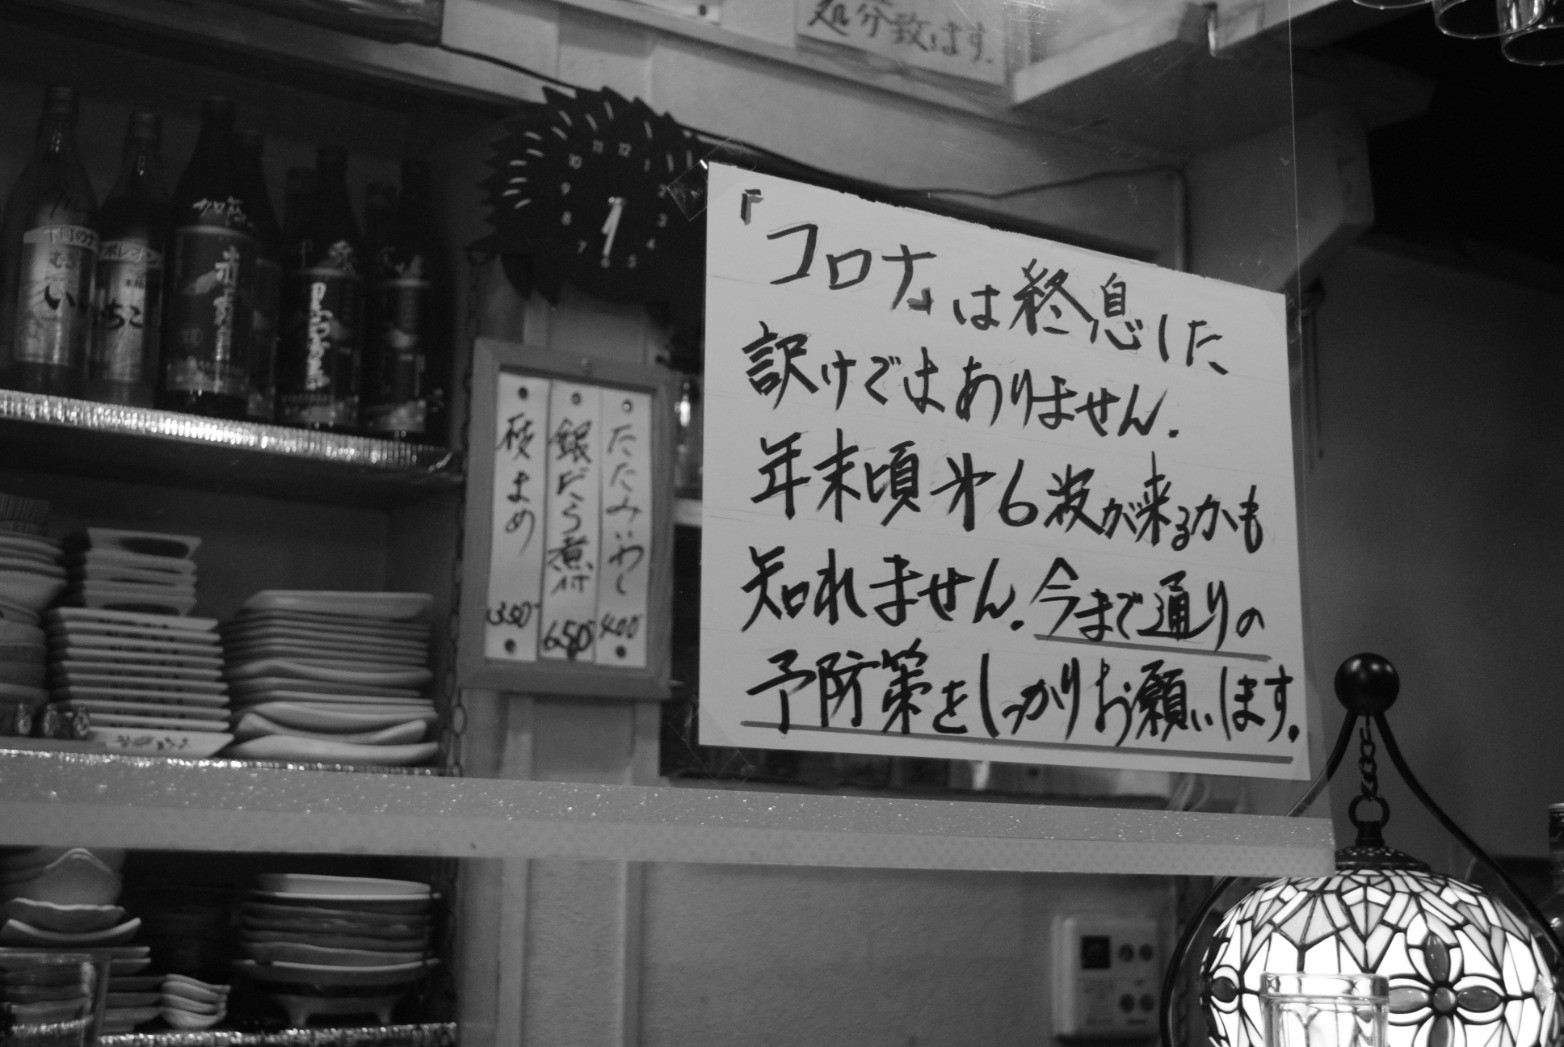 処分致します。
『コロナ』は終息した
訳けではありません。
年末頃第6波が来るかも
知れません。今まで通りの
予防策をしっかりお願いします。
たたみいわし 400
銀だら煮付 650
枝まめ 350
いいちこ
12
1
2
3
4
5
6
8
9
10
11